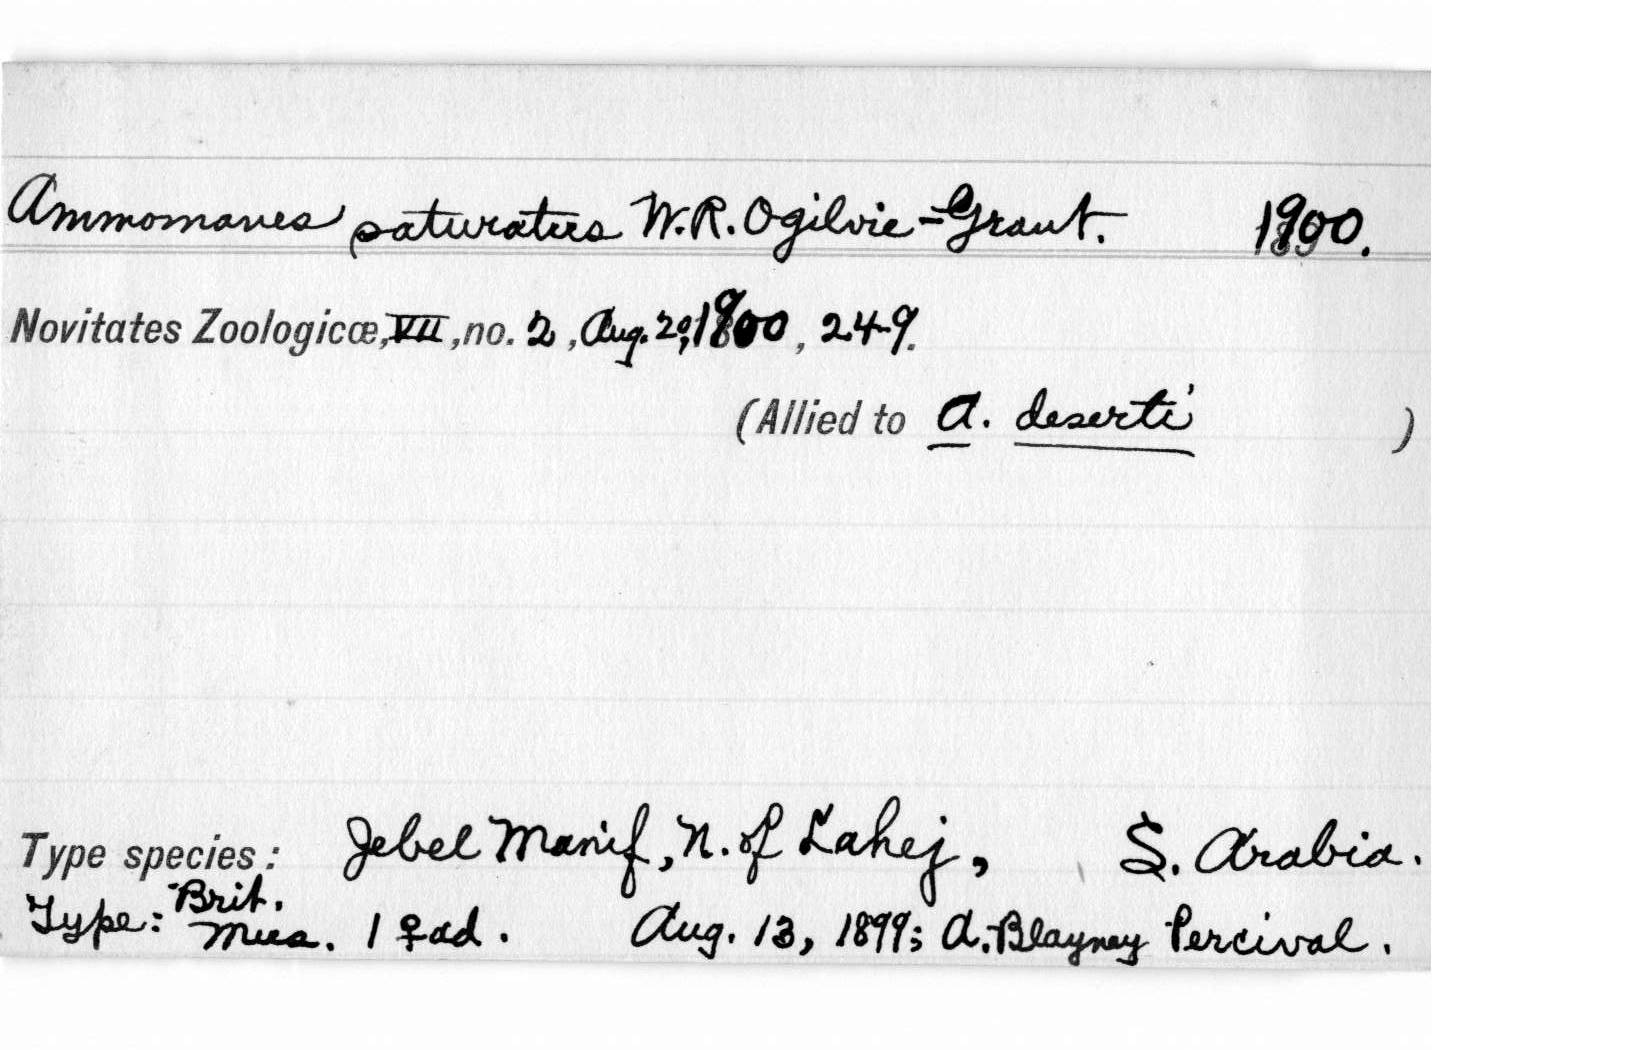 Ammomanes saturatus W.R. Ogilvie-Grant. 1900.
Novitates Zoologicæ, VII, no. 2, Aug. 20, 1900, 249.
(Allied to A. deserti )
Type species: Jebel Manif, N. of Lahej, S. Arabia.
Type: Brit. Mus. 1 ♀ ad. Aug. 13, 1899; A. Blayney Percival.